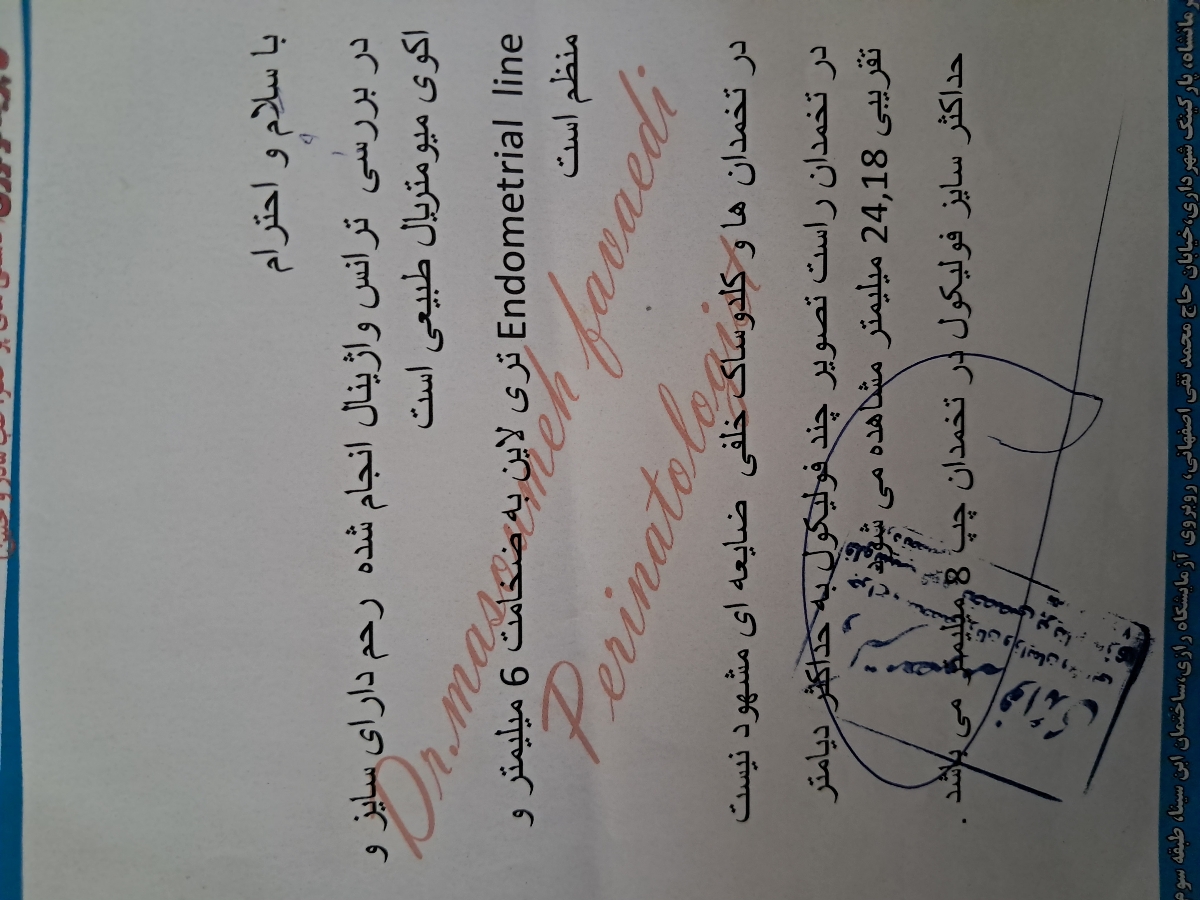 با سلام و احترام
در بررسی ترانس واژینال انجام شده رحم دارای سایز و
اکوی میومتریال طبیعی است
Endometrial line تری لاین به ضخامت 6 میلیمتر و
منظم است
Dr.masoumeh favaedi
Perinatologist
در تخمدان ها و کلدوساک خلفی ضایعه ای مشهود نیست
در تخمدان راست تصویر چند فولیکول به حداکثر دیامتر
تقریبی 24,18 میلیمتر مشاهده می شود
حداکثر سایز فولیکول در تخمدان چپ 8 میلیمتر می باشد .
کرمانشاه، پارکینگ شهرداری، خیابان حاج محمد تقی اصفهانی، روبروی آزمایشگاه رازی، ساختمان ابن سینا، طبقه سوم